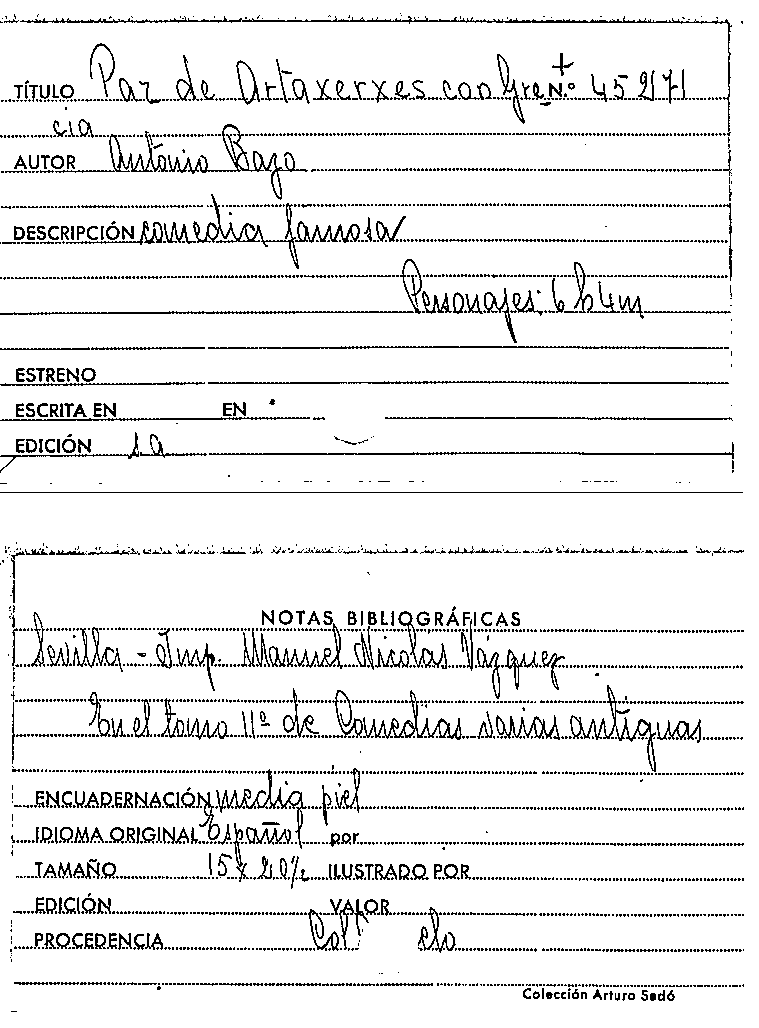 TÍTULO Paz de Artaxerxes con Gre N.º 45 2171
cia
AUTOR Antonio Bazo
DESCRIPCIÓN comedia famosa
Personajes: 6 h 4 m
ESTRENO
ESCRITA EN EN
EDICIÓN s a
NOTAS BIBLIOGRÁFICAS
Sevilla - Imp. Manuel Nicolás Vázquez
En el tomo 11º de Comedias varias antiguas
ENCUADERNACIÓN media piel
IDIOMA ORIGINAL Español por
TAMAÑO 15 x 20 ILUSTRADO POR
EDICIÓN VALOR
PROCEDENCIA
Colección Arturo Sedó